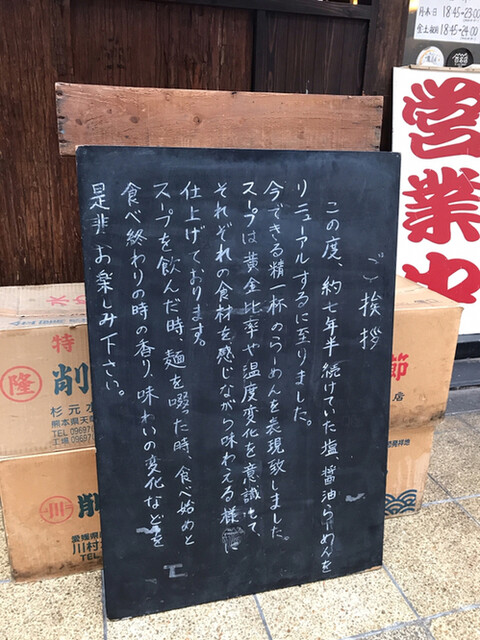 ご挨拶
この度、約七年半続けていた塩、醤油らーめんを
リニューアルするに至りました。
今できる精一杯のらーめんを表現致しました。
スープは黄金比率や温度変化を意識して、
それぞれの食材を感じながら味わえる様に
仕上げております。
スープを飲んだ時、麺を啜った時、食べ始めと
食べ終わりの時の香り、味わいの変化などを
是非お楽しみ下さい。
営業中
月木日 18:45→23:00
金土祝前 18:45→24:00
特
隆 削
節
杉元水
熊本県天
TEL 0969
工場 0969
店
川 削
愛媛県
川村
TEL